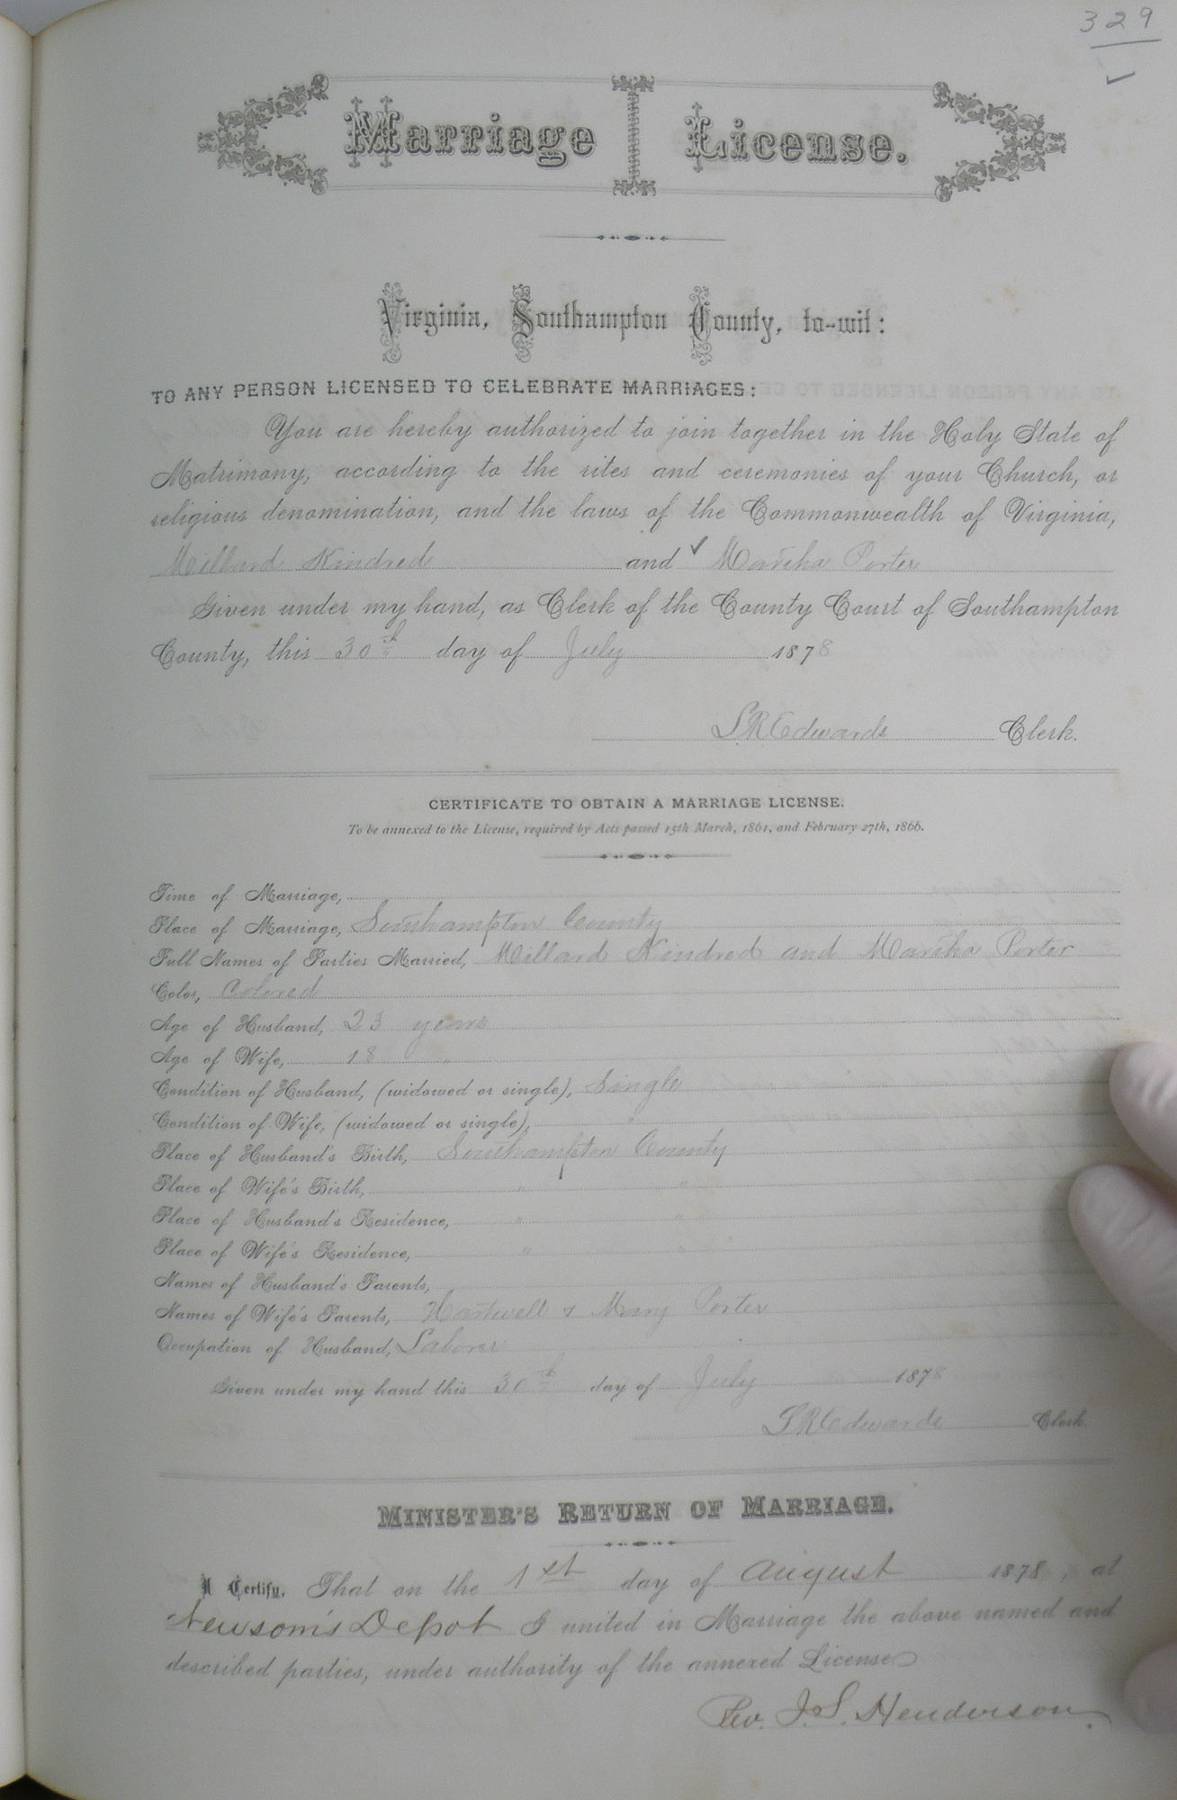 329
Marriage License.
Virginia, Southampton County, to-wit:
TO ANY PERSON LICENSED TO CELEBRATE MARRIAGES:
You are hereby authorized to join together in the Holy State of
Matrimony, according to the rites and ceremonies of your Church, or
religious denomination, and the laws of the Commonwealth of Virginia,
Millard Kindred and Martha Porter
Given under my hand, as Clerk of the County Court of Southampton
County, this 30th day of July 1878
L.R. Edwards Clerk.
CERTIFICATE TO OBTAIN A MARRIAGE LICENSE.
To be annexed to the License, required by Acts passed 15th March, 1861, and February 27th, 1866.
Time of Marriage,
Place of Marriage, Southampton County
Full Names of Parties Married, Millard Kindred and Martha Porter
Color, Colored
Age of Husband, 23 years
Age of Wife, 18 "
Condition of Husband, (widowed or single), Single
Condition of Wife, (widowed or single), "
Place of Husband's Birth, Southampton County
Place of Wife's Birth, " "
Place of Husband's Residence, " "
Place of Wife's Residence, " "
Names of Husband's Parents,
Names of Wife's Parents, Hartwell & Mary Porter
Occupation of Husband, Laborer
Given under my hand this 30th day of July 1878
L R Edwards Clerk.
MINISTER'S RETURN OF MARRIAGE.
I Certify, That on the 1st day of August 1878, at
Newsom's Depot I united in Marriage the above named and
described parties, under authority of the annexed License
Rev. J. S. Henderson.